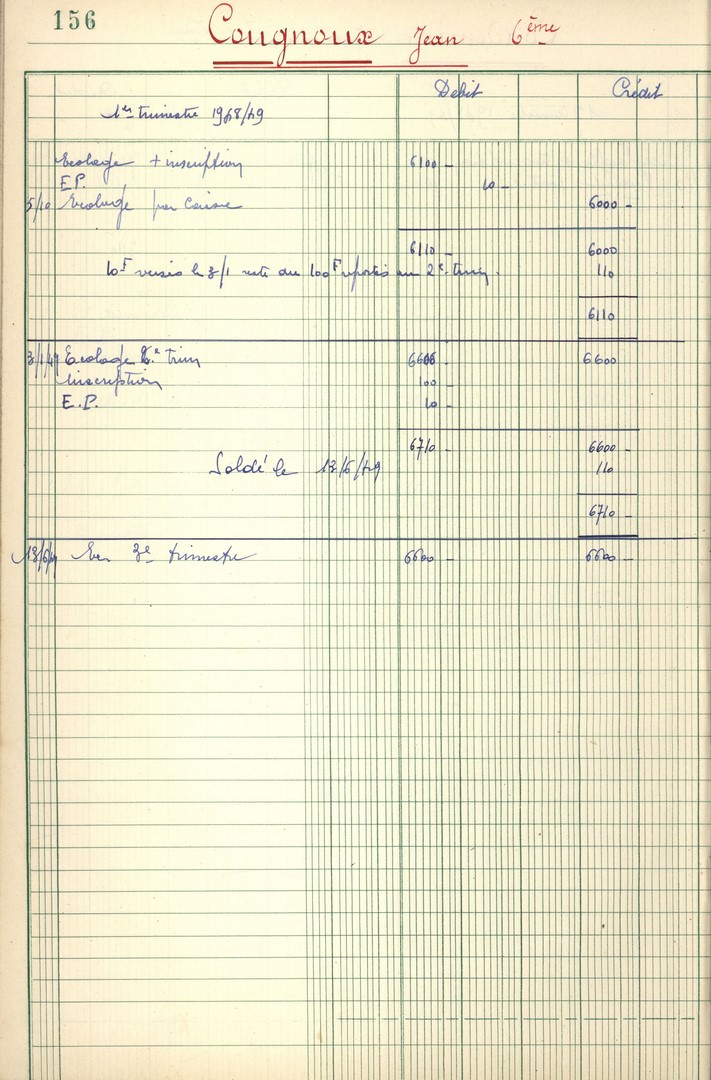 156
Cougnoux Jean 6ème
Débit Crédit
1er trimestre 1948/49
Ecolage + inscription 6100 -
E.P. 10 -
5/10 Ecolage par Caisse 6000 -
6110 - 6000
10F versés le 3/1 reste du 100F reportés au 2e trim. 110
6110
3/1/49 Ecolage 2e trim 6600 - 6600
Inscription 100 -
E.P. 10 -
6710 - 6600 -
Soldé le 13/6/49 110
6710 -
13/6/49 3e trimestre 6600 - 6600 -